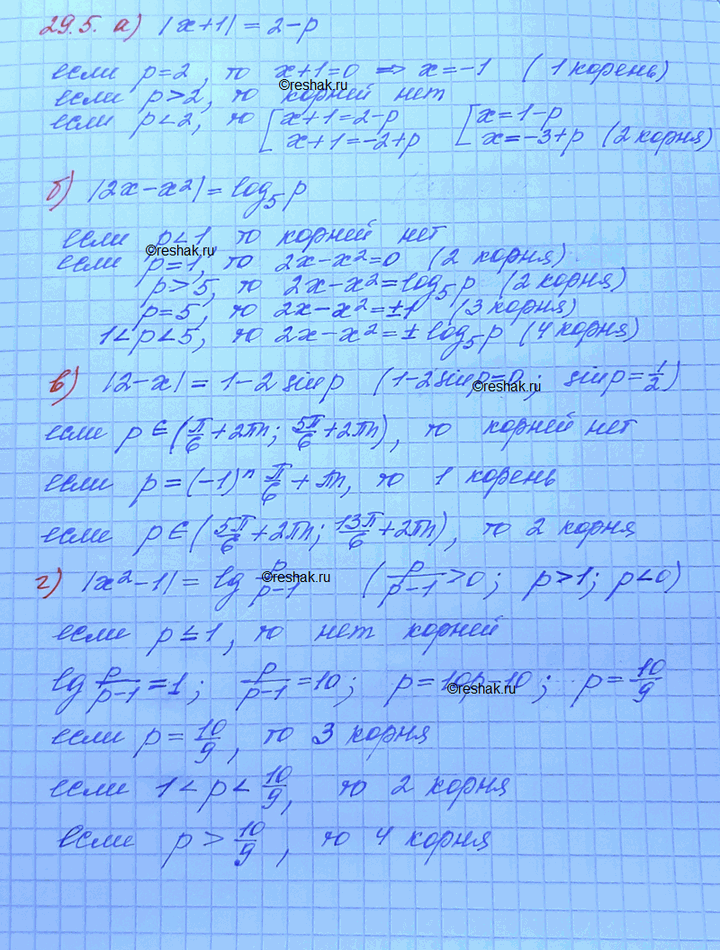 29.5. а) |x+1| = 2-p
если p=2, то x+1=0 ⇒ x=-1 (1 корень)
©reshak.ru
если p>2, то корней нет
если p<2, то [x+1=2-p [x=1-p
x+1=-2+p x=-3+p (2 корня)
б) |2x-x²| = log₅p
если p<1, то корней нет
©reshak.ru
если p=1, то 2x-x²=0 (2 корня)
p>5, то 2x-x²=log₅p (2 корня)
p=5, то 2x-x²=±1 (3 корня)
1<p<5, то 2x-x²=±log₅p (4 корня)
в) |2-x| = 1-2sinp (1-2sinp=0; sinp=1/2)
©reshak.ru
если p∈(π/6+2πn; 5π/6+2πn), то корней нет
если p=(-1)ⁿ π/6+πn, то 1 корень
если p∈(5π/6+2πn; 13π/6+2πn), то 2 корня
г) |x²-1| = lg p/p-1 (p/p-1>0; p>1; p<0)
©reshak.ru
если p≤1, то нет корней
lg p/p-1=1; p/p-1=10; p=10p-10; p=10/9
©reshak.ru
если p=10/9, то 3 корня
если 1<p<10/9, то 2 корня
если p>10/9, то 4 корня